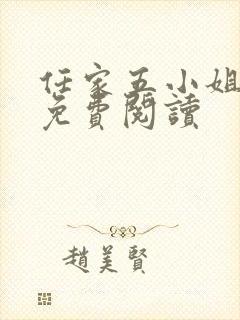 任家五小姐
免費閱讀
趙美賢